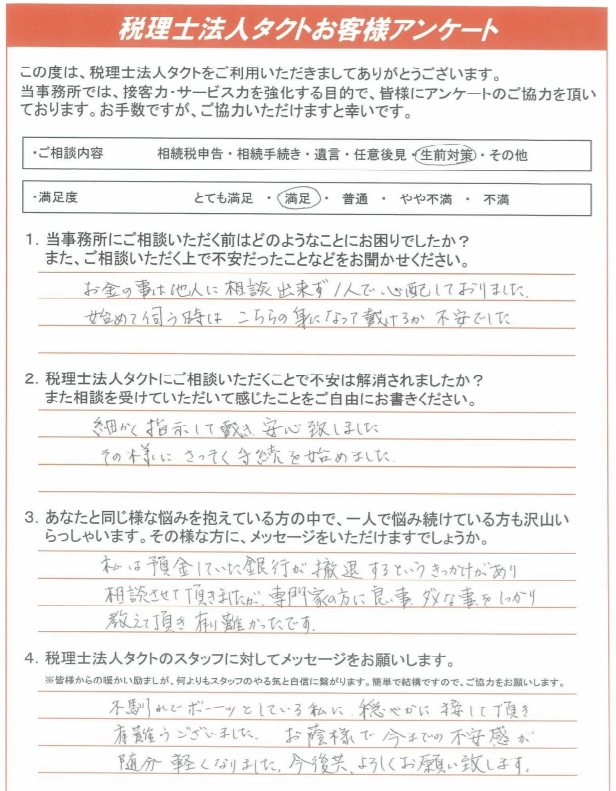 税理士法人タクトお客様アンケート
この度は、税理士法人タクトをご利用いただきましてありがとうございます。
当事務所では、接客力・サービス力を強化する目的で、皆様にアンケートのご協力を頂い
ております。お手数ですが、ご協力いただけますと幸いです。
・ご相談内容 相続税申告・相続手続き・遺言・任意後見・生前対策・その他
・満足度 とても満足 ・ 満足 ・ 普通 ・ やや不満 ・ 不満
1．当事務所にご相談いただく前はどのようなことにお困りでしたか？
また、ご相談いただく上で不安だったことなどをお聞かせください。
お金の事は他人に相談出来ず1人で心配しておりました。
始めて伺う時は こちらの身になって戴けるか 不安でした
2．税理士法人タクトにご相談いただくことで不安は解消されましたか？
また相談を受けていただいて感じたことをご自由にお書きください。
細かく指示して戴き 安心致しました
その様に さっそく手続を始めました。
3．あなたと同じ様な悩みを抱えている方の中で、一人で悩み続けている方も沢山い
らっしゃいます。その様な方に、メッセージをいただけますでしょうか。
私は預金していた銀行が撤退するというきっかけがあり
相談させて頂きましたが、専門家の方に良い事、ダメな事をしっかり
教えて頂き有り難かったです。
4．税理士法人タクトのスタッフに対してメッセージをお願いします。
※皆様からの暖かい励ましが、何よりもスタッフのやる気と自信に繋がります。簡単で結構ですので、ご協力をお願いします。
不馴れでボーッとしている私に、穏やかに接して頂き
有難うございました。 お蔭様で今までの不安感が
随分軽くなりました。今後共、よろしくお願い致します。